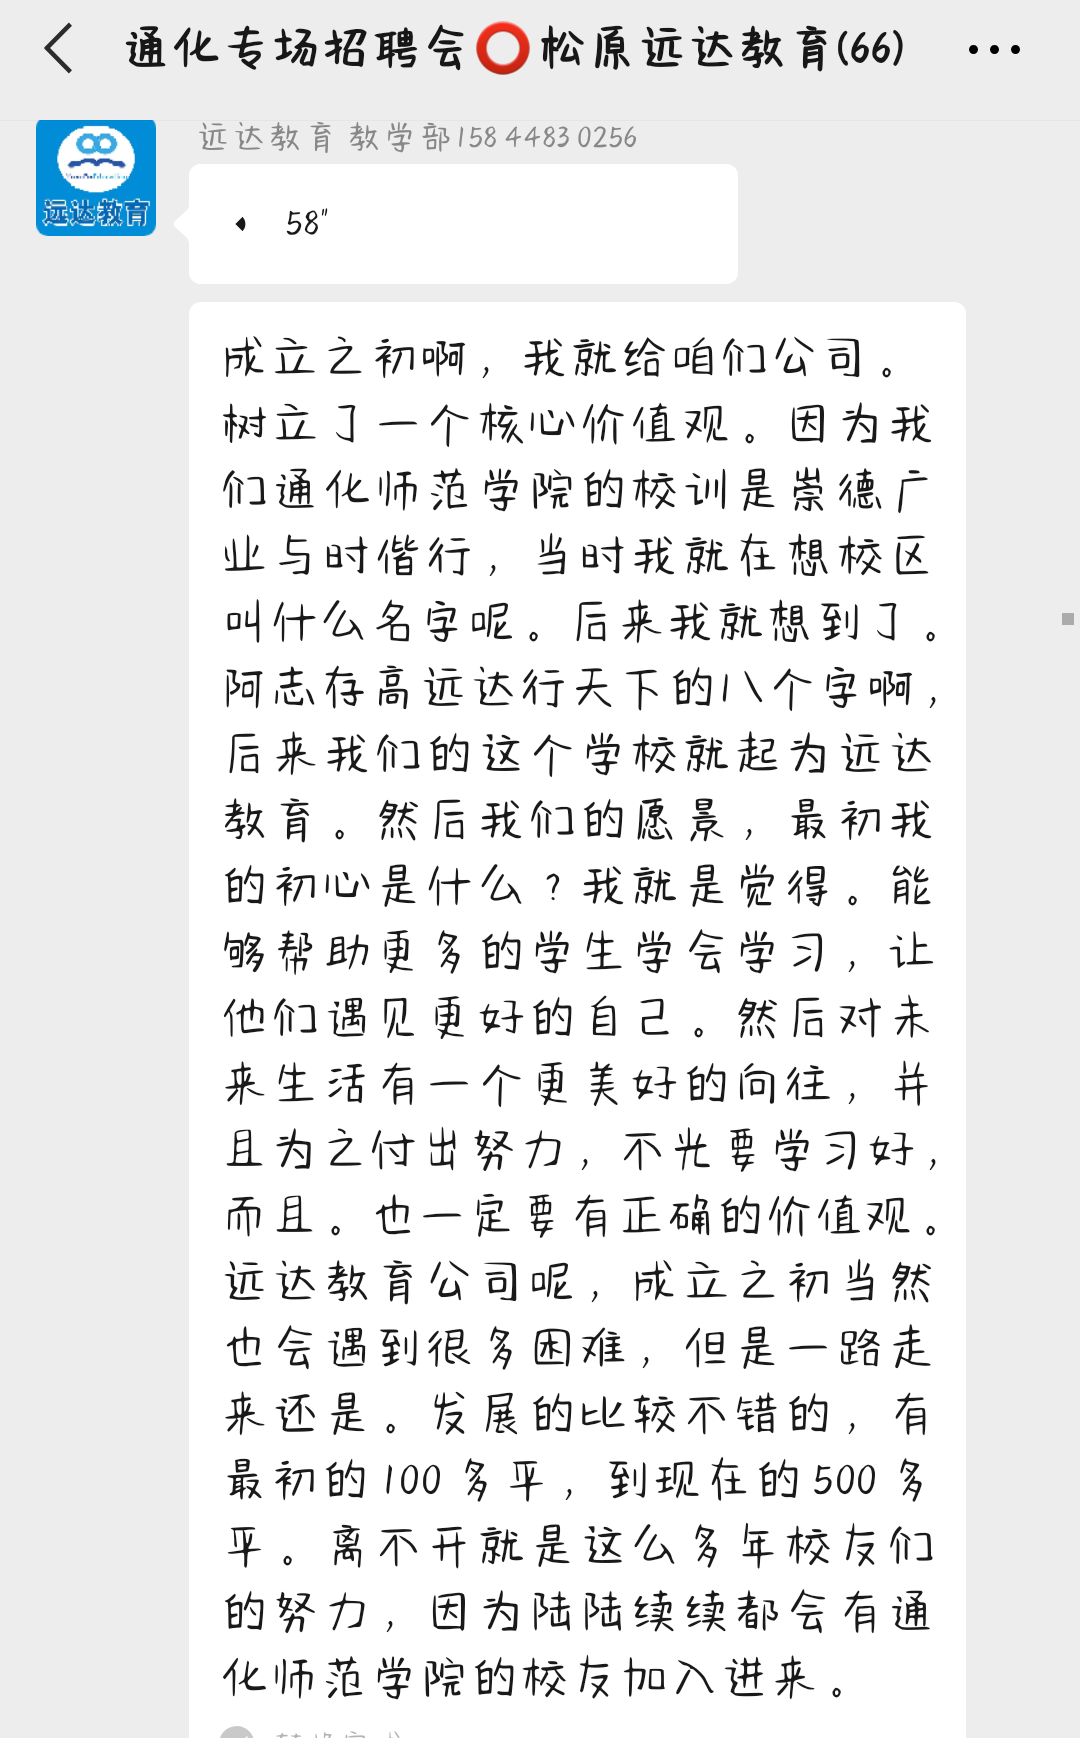 通化专场招聘会⭕松原远达教育(66)
远达教育 教学部158 4483 0256
远达教育
58"
成立之初啊，我就给咱们公司。
树立了一个核心价值观。因为我
们通化师范学院的校训是崇德广
业与时偕行，当时我就在想校区
叫什么名字呢。后来我就想到了。
阿志存高远达行天下的八个字啊，
后来我们的这个学校就起为远达
教育。然后我们的愿景，最初我
的初心是什么？我就是觉得。能
够帮助更多的学生学会学习，让
他们遇见更好的自己。然后对未
来生活有一个更美好的向往，并
且为之付出努力，不光要学习好，
而且。也一定要有正确的价值观。
远达教育公司呢，成立之初当然
也会遇到很多困难，但是一路走
来还是。发展的比较不错的，有
最初的100 多平，到现在的500 多
平。离不开就是这么多年校友们
的努力，因为陆陆续续都会有通
化师范学院的校友加入进来。